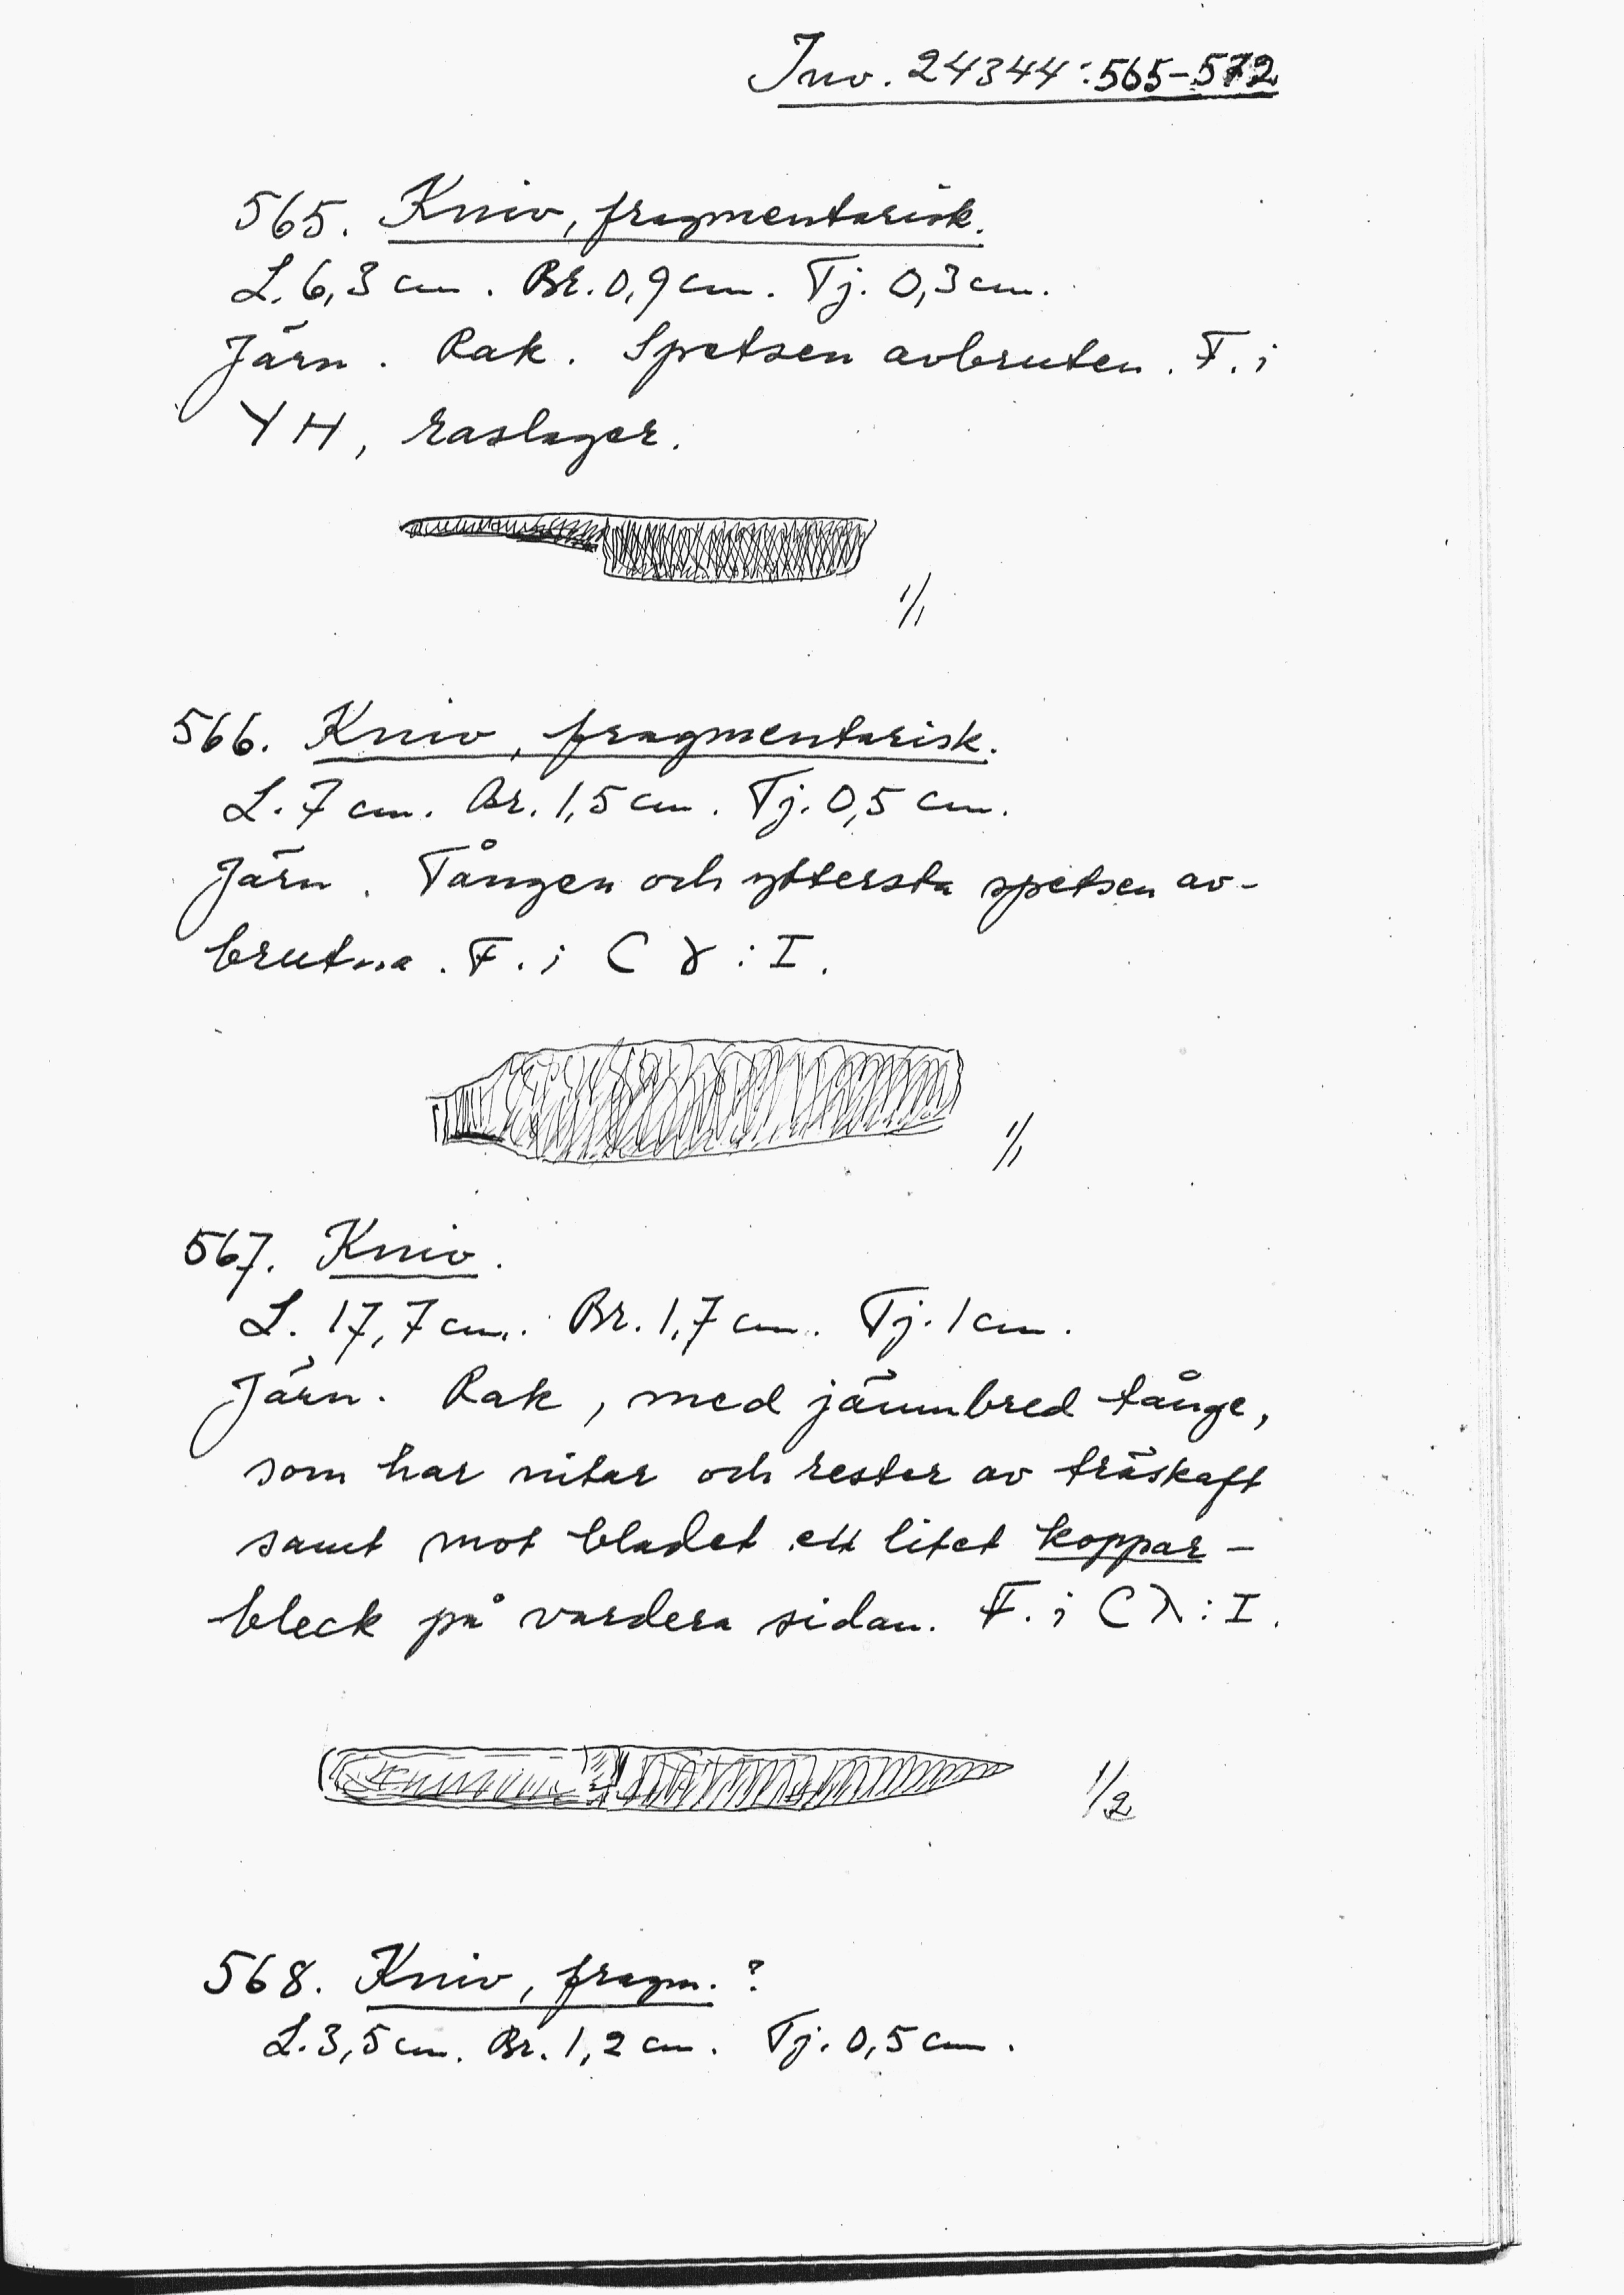 Inv. 24344:565-572
565. Kniv, fragmentarisk.
L. 6,3 cm. Br. 0,9 cm. Tj. 0,3 cm.
Järn. Rak. Spetsen avbruten. F. i
YH, raslager.
1/1
566. Kniv, fragmentarisk.
L. 7 cm. Br. 1,5 cm. Tj. 0,5 cm.
Järn. Tången och yttersta spetsen av-
brutna. F. i C γ : I.
1/1
567. Kniv.
L. 17,7 cm. Br. 1,7 cm. Tj. 1 cm.
Järn. Rak, med jämnbred tånge,
som har nitar och rester av träskaft
samt mot bladet ett litet koppar-
bleck på vardera sidan. F. i C λ : I.
1/2
568. Kniv, fragm. ?
L. 3,5 cm. Br. 1,2 cm. Tj. 0,5 cm.